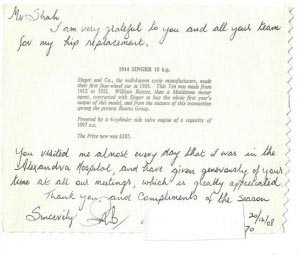 Mr Shah
I am very grateful to you and all your team
for my hip replacement.
1914 SINGER 10 h.p.
Singer and Co., the well-known cycle manufacturers, made
their first four-wheel car in 1905. This Ten was made from
1912 to 1921. William Rootes, then a Maidstone motor
agent, contracted with Singer to buy the whole first year's
output of this model, and from the success of this transaction
sprang the present Rootes Group.
Powered by a 4-cylinder side valve engine of a capacity of
1097 c.c.
The Price new was £185.
You visited me almost every day that I was in the
Alexandra Hospital, and have given generously of your
time at all our meetings, which is greatly appreciated
Thank you, and Compliments of the Season
Sincerely
20/12/08